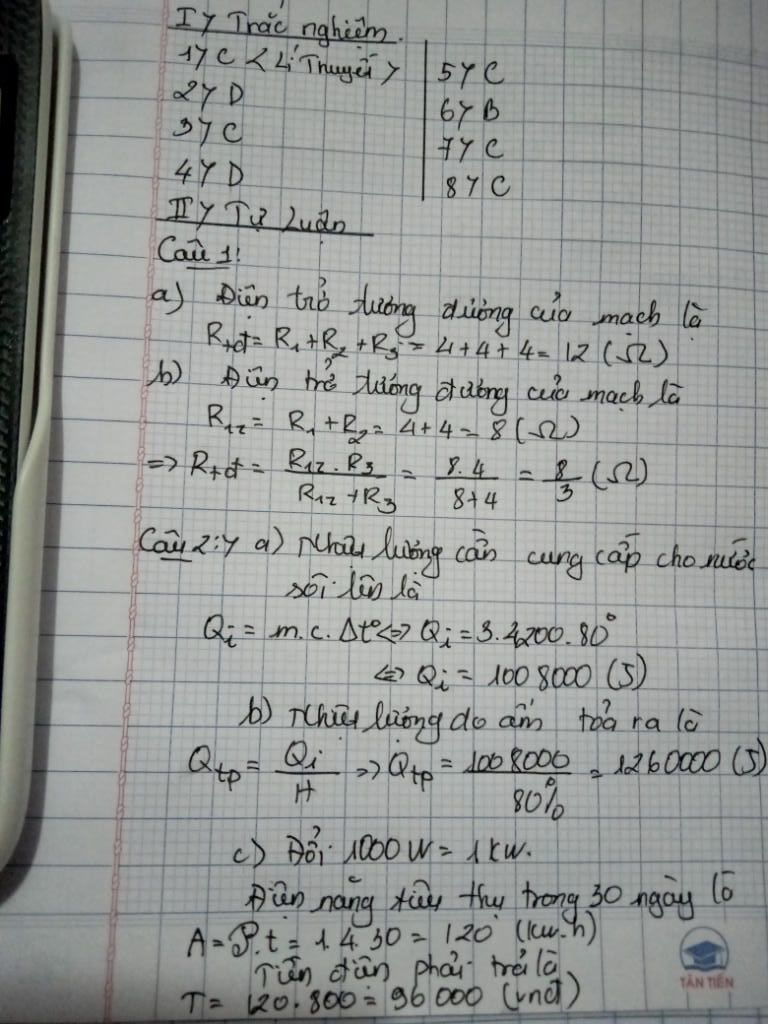 I> Trắc nghiệm.
1> C < Lí Thuyết >
2> D
3> C
4> D
5> C
6> B
7> C
8> C
II> Tự Luận
Câu 1:
a) Điện trở tương đương của mạch là
Rtđ = R1 + R2 + R3 = 4 + 4 + 4 = 12 (Ω)
b) Điện trở tương đương của mạch là
R12 = R1 + R2 = 4 + 4 = 8 (Ω)
=> Rtđ = R12 . R3 / R12 + R3 = 8.4 / 8+4 = 8/3 (Ω)
Câu 2:> a) Nhiệt lượng cần cung cấp cho nước
sôi lên là
Qi = m.c.Δt° <=> Qi = 3.4200.80°
<=> Qi = 1008000 (J)
b) Nhiệt lượng do ấm toả ra là
Qtp = Qi / H => Qtp = 1008000 / 80% = 1260000 (J)
c) Đổi 1000W = 1kw.
Điện năng tiêu thụ trong 30 ngày là
A = P.t = 1.4.30 = 120 (kw.h)
Tiền điện phải trả là
T = 120.800 = 96000 (vnđ)
TÂN TIẾN